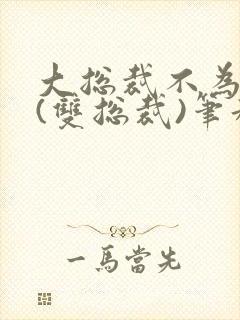 大总裁不為
(雙总裁)筆
一馬當先